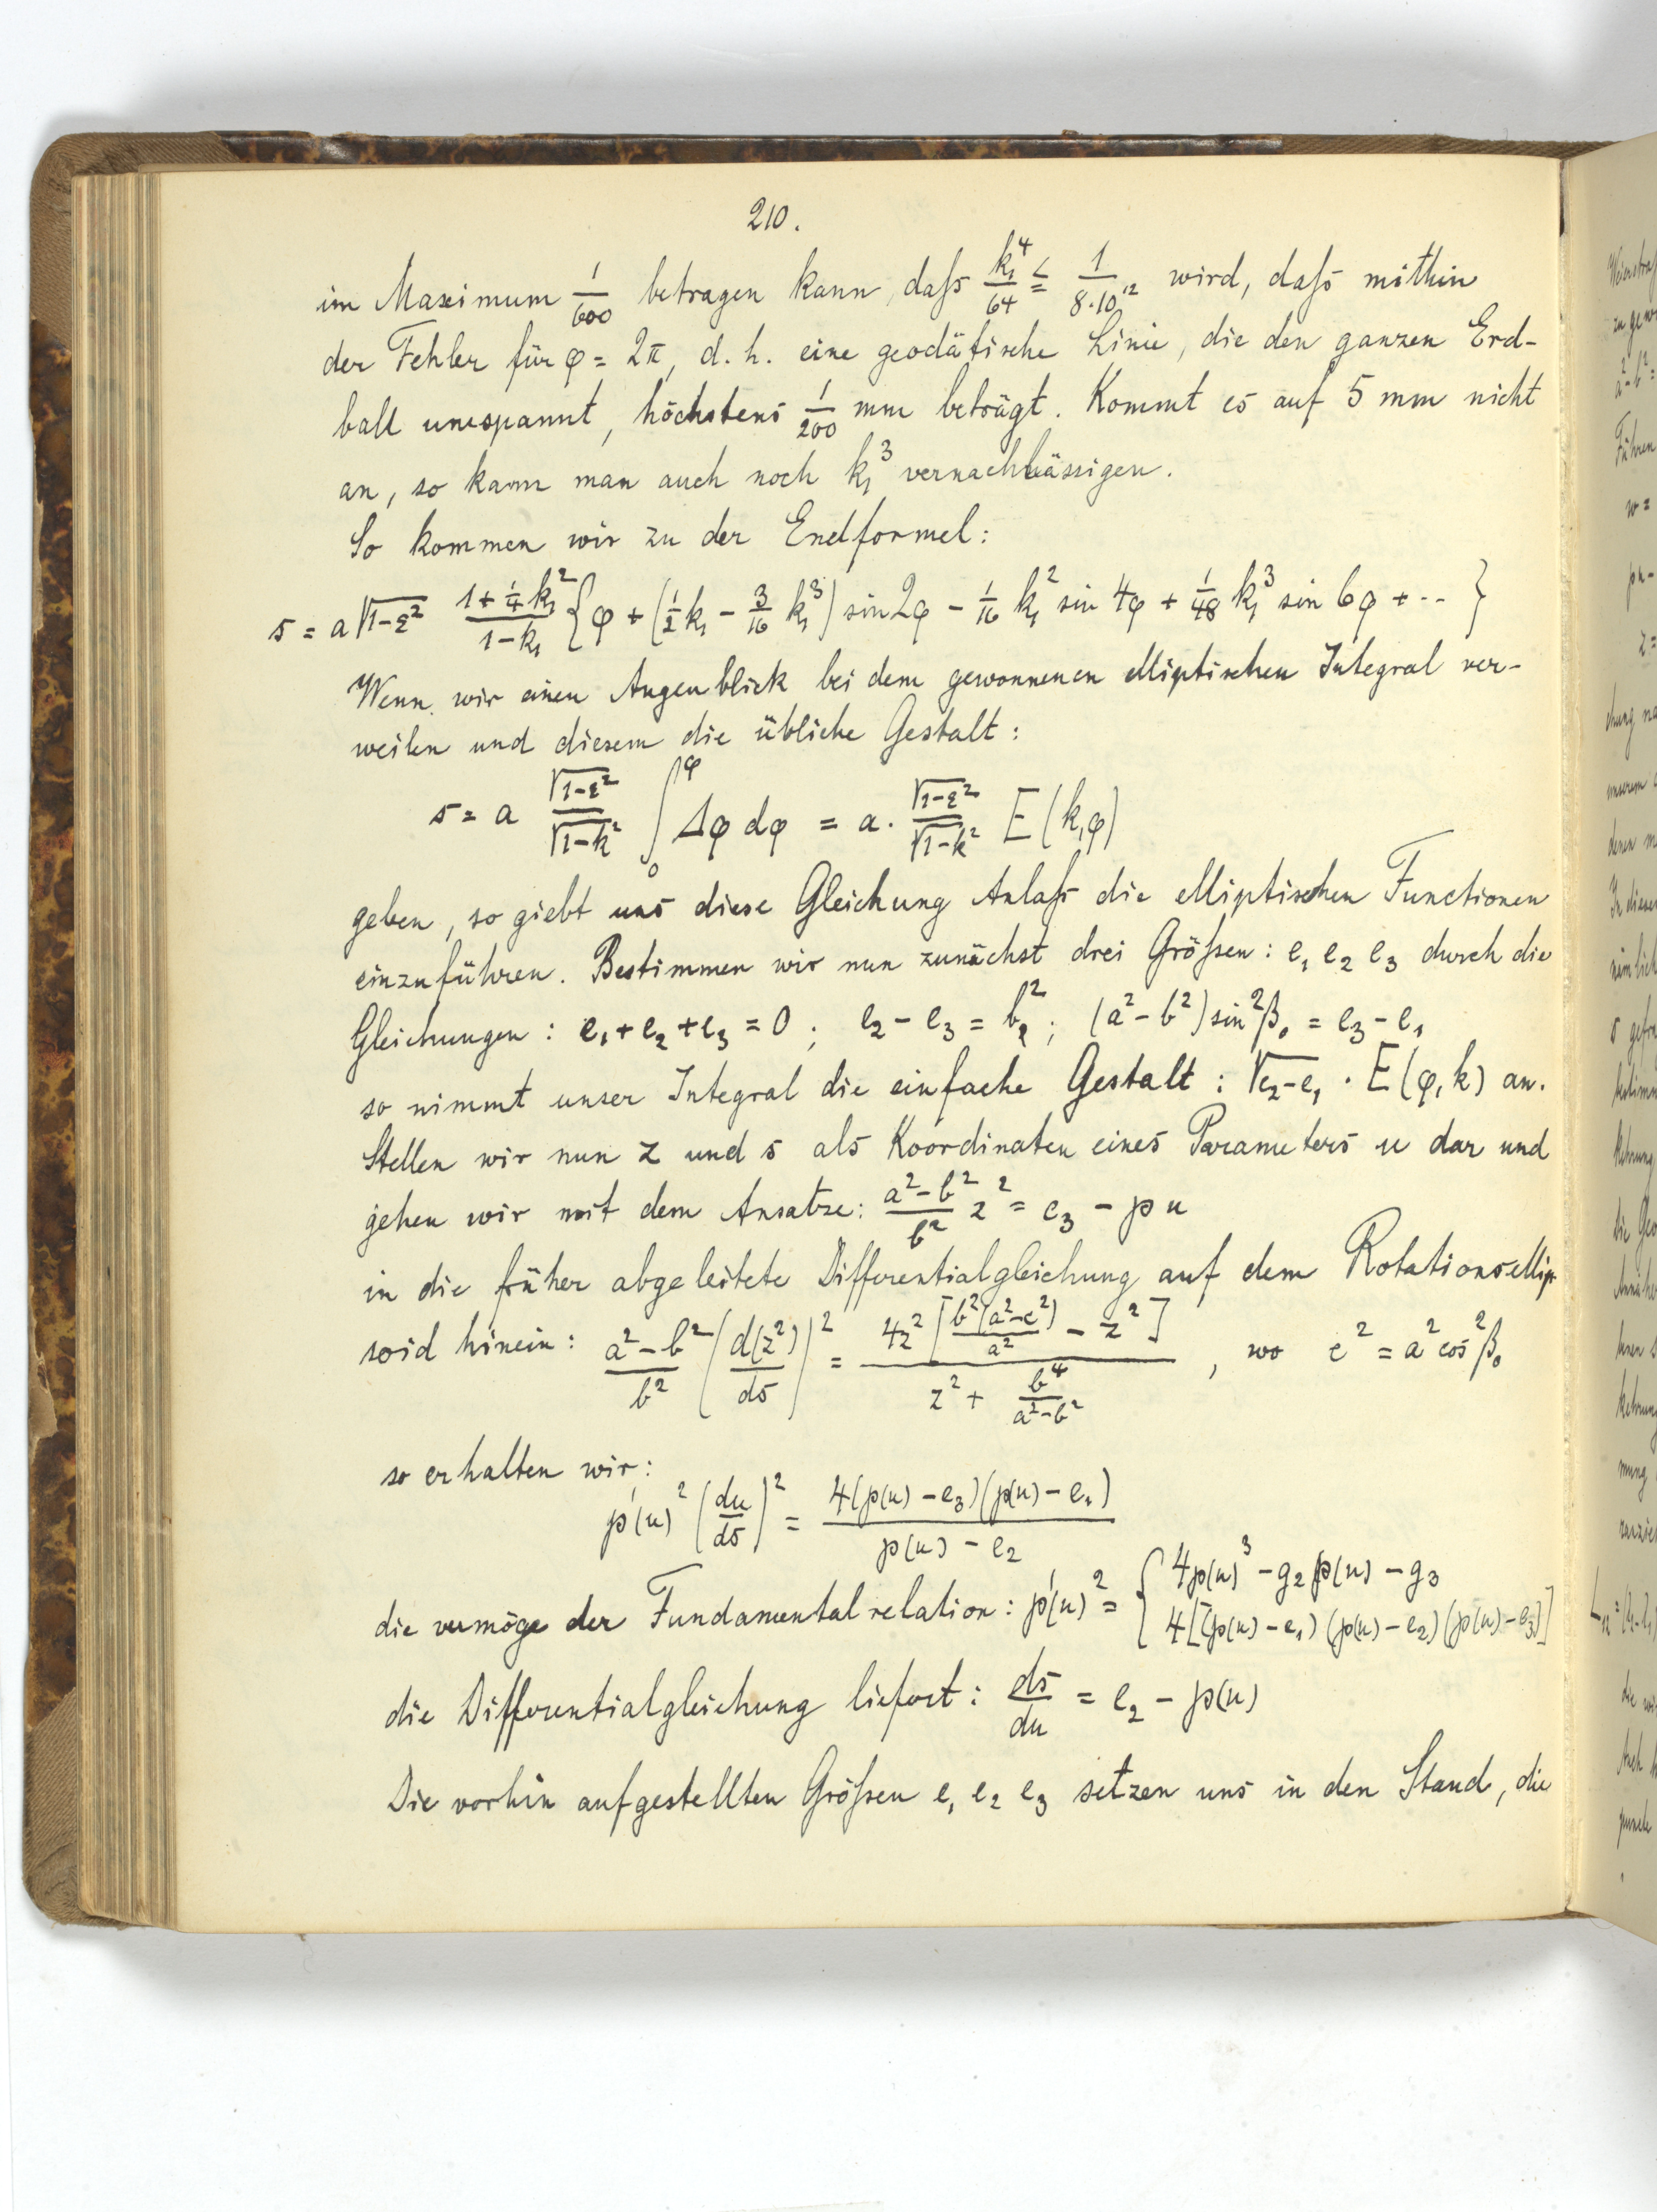 210.
im Maximum 1/600 betragen kann, daß k₁⁴/64 ≤ 1/8·10¹² wird, daß mithin
der Fehler für φ = 2π, d. h. eine geodätische Linie, die den ganzen Erd-
ball umspannt, höchstens 1/200 mm beträgt. Kommt es auf 5 mm nicht
an, so kann man auch noch k₁³ vernachlässigen.
So kommen wir zu der Endformel:
s = a√(1-ε²) (1+¼k₁²)/(1-k₁) {φ + (½k₁ - 3/16 k₁³) sin2φ - 1/16 k₁² sin 4φ + 1/48 k₁³ sin 6φ + ··· }
Wenn wir einen Augenblick bei dem gewonnenen elliptischen Integral ver-
weilen und diesem die übliche Gestalt:
s = a √(1-ε²)/√(1-k²) ∫₀^φ Δφ dφ = a · √(1-ε²)/√(1-k²) E(k,φ)
geben, so giebt uns diese Gleichung Anlaß die elliptischen Functionen
einzuführen. Bestimmen wir nun zunächst drei Größen: e₁ e₂ e₃ durch die
Gleichungen: e₁+e₂+e₃ = 0; e₂ - e₃ = b²; (a²-b²) sin²β₀ = e₃ - e₁
so nimmt unser Integral die einfache Gestalt: √(e₂-e₁) · E(φ,k) an.
Stellen wir nun z und s als Koordinaten eines Parameters u dar und
gehen wir mit dem Ansatze: (a²-b²)/b² z² = e₃ - ℘u
in die früher abgeleitete Differentialgleichung auf dem Rotationsellip-
soid hinein: (a²-b²)/b² (d(z²)/ds)² = 4z² [b²(a²-c²)/a² - z²] / (z² + b⁴/(a²-b²)), wo c² = a² cos²β₀
so erhalten wir:
℘'(u)² (du/ds)² = 4(℘(u)-e₃)(℘(u)-e₁) / (℘(u) - e₂)
die vermöge der Fundamentalrelation: ℘'(u)² = { 4℘(u)³ - g₂℘(u) - g₃
4[(℘(u)-e₁)(℘(u)-e₂)(℘(u)-e₃)]
die Differentialgleichung liefert: ds/du = e₂ - ℘(u)
Die vorhin aufgestellten Größen e₁ e₂ e₃ setzen uns in den Stand, die